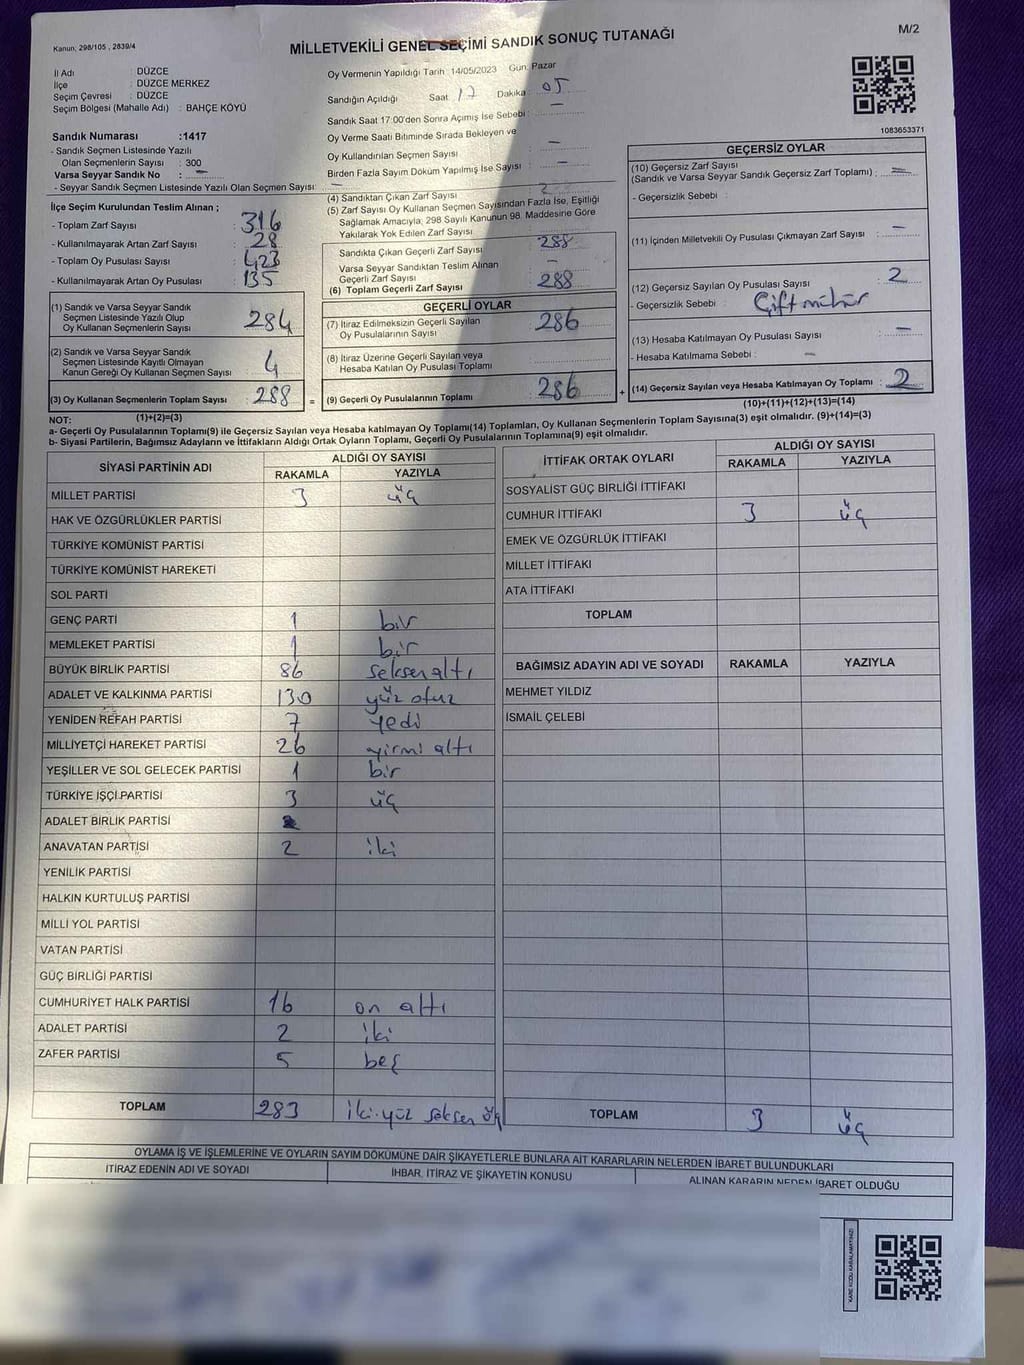 Kanun, 298/105 , 2839/4
MİLLETVEKİLİ GENEL SEÇİMİ SANDIK SONUÇ TUTANAĞI
M/2
İl Adı : DÜZCE
İlçe : DÜZCE MERKEZ
Seçim Çevresi : DÜZCE
Seçim Bölgesi (Mahalle Adı) : BAHÇE KÖYÜ
Sandık Numarası :1417
- Sandık Seçmen Listesinde Yazılı
Olan Seçmenlerin Sayısı : 300
Varsa Seyyar Sandık No : —
- Seyyar Sandık Seçmen Listesinde Yazılı Olan Seçmen Sayısı: —
Oy Vermenin Yapıldığı Tarih : 14/05/2023 Gün: Pazar
Sandığın Açıldığı Saat 17 Dakika: 05
Sandık Saat 17:00'den Sonra Açımış İse Sebebi : —
Oy Verme Saati Bitiminde Sırada Bekleyen ve
Oy Kullandırılan Seçmen Sayısı : —
Birden Fazla Sayım Döküm Yapılmış İse Sayısı : —
1083653371
İlçe Seçim Kurulundan Teslim Alınan ;
- Toplam Zarf Sayısı : 316
- Kullanılmayarak Artan Zarf Sayısı : 28
- Toplam Oy Pusulası Sayısı : 423
- Kullanılmayarak Artan Oy Pusulası : 135
(1) Sandık ve Varsa Seyyar Sandık
Seçmen Listesinde Yazılı Olup
Oy Kullanan Seçmenlerin Sayısı : 284
(2) Sandık ve Varsa Seyyar Sandık
Seçmen Listesinde Kayıtlı Olmayan
Kanun Gereği Oy Kullanan Seçmen Sayısı : 4
(3) Oy Kullanan Seçmenlerin Toplam Sayısı : 288
(1)+(2)=(3)
(4) Sandıktan Çıkan Zarf Sayısı :
(5) Zarf Sayısı Oy Kullanan Seçmen Sayısından Fazla İse, Eşitliği
Sağlamak Amacıyla, 298 Sayılı Kanunun 98. Maddesine Göre
Yakılarak Yok Edilen Zarf Sayısı :
Sandıkta Çıkan Geçerli Zarf Sayısı : 288
Varsa Seyyar Sandıktan Teslim Alınan
Geçerli Zarf Sayısı : —
(6) Toplam Geçerli Zarf Sayısı : 288
GEÇERLİ OYLAR
(7) İtiraz Edilmeksizin Geçerli Sayılan
Oy Pusulalarının Sayısı : 286
(8) İtiraz Üzerine Geçerli Sayılan veya
Hesaba Katılan Oy Pusulası Toplamı :
= (9) Geçerli Oy Pusulalarının Toplamı : 286
GEÇERSİZ OYLAR
(10) Geçersiz Zarf Sayısı
(Sandık ve Varsa Seyyar Sandık Geçersiz Zarf Toplamı) : —
- Geçersizlik Sebebi :
(11) İçinden Milletvekili Oy Pusulası Çıkmayan Zarf Sayısı : —
(12) Geçersiz Sayılan Oy Pusulası Sayısı : 2
- Geçersizlik Sebebi : Çift mühür
(13) Hesaba Katılmayan Oy Pusulası Sayısı : —
- Hesaba Katılmama Sebebi : —
+ (14) Geçersiz Sayılan veya Hesaba Katılmayan Oy Toplamı : 2
(10)+(11)+(12)+(13)=(14)
NOT:
a- Geçerli Oy Pusulalarının Toplamı(9) ile Geçersiz Sayılan veya Hesaba katılmayan Oy Toplamı(14) Toplamları, Oy Kullanan Seçmenlerin Toplam Sayısına(3) eşit olmalıdır. (9)+(14)=(3)
b- Siyasi Partilerin, Bağımsız Adayların ve İttifakların Aldığı Ortak Oyların Toplamı, Geçerli Oy Pusulalarının Toplamına(9) eşit olmalıdır.
SİYASİ PARTİNİN ADI ALDIĞI OY SAYISI
RAKAMLA YAZIYLA
MİLLET PARTİSİ 3 üç
HAK VE ÖZGÜRLÜKLER PARTİSİ
TÜRKİYE KOMÜNİST PARTİSİ
TÜRKİYE KOMÜNİST HAREKETİ
SOL PARTİ
GENÇ PARTİ 1 bir
MEMLEKET PARTİSİ 1 bir
BÜYÜK BİRLİK PARTİSİ 86 seksen altı
ADALET VE KALKINMA PARTİSİ 130 yüz otuz
YENİDEN REFAH PARTİSİ 7 yedi
MİLLİYETÇİ HAREKET PARTİSİ 26 yirmi altı
YEŞİLLER VE SOL GELECEK PARTİSİ 1 bir
TÜRKİYE İŞÇİ PARTİSİ 3 üç
ADALET BİRLİK PARTİSİ
ANAVATAN PARTİSİ 2 iki
YENİLİK PARTİSİ
HALKIN KURTULUŞ PARTİSİ
MİLLİ YOL PARTİSİ
VATAN PARTİSİ
GÜÇ BİRLİĞİ PARTİSİ
CUMHURİYET HALK PARTİSİ 16 on altı
ADALET PARTİSİ 2 iki
ZAFER PARTİSİ 5 beş
TOPLAM 283 iki yüz seksen üç
İTTİFAK ORTAK OYLARI ALDIĞI OY SAYISI
RAKAMLA YAZIYLA
SOSYALİST GÜÇ BİRLİĞİ İTTİFAKI
CUMHUR İTTİFAKI 3 üç
EMEK VE ÖZGÜRLÜK İTTİFAKI
MİLLET İTTİFAKI
ATA İTTİFAKI
TOPLAM
BAĞIMSIZ ADAYIN ADI VE SOYADI RAKAMLA YAZIYLA
MEHMET YILDIZ
İSMAİL ÇELEBİ
TOPLAM 3 üç
OYLAMA İŞ VE İŞLEMLERİNE VE OYLARIN SAYIM DÖKÜMÜNE DAİR ŞİKAYETLERLE BUNLARA AİT KARARLARIN NELERDEN İBARET BULUNDUKLARI
İTİRAZ EDENİN ADI VE SOYADI İHBAR, İTİRAZ VE ŞİKAYETİN KONUSU ALINAN KARARIN NEDEN İBARET OLDUĞU
KARE KODU KARALAMAYINIZ!